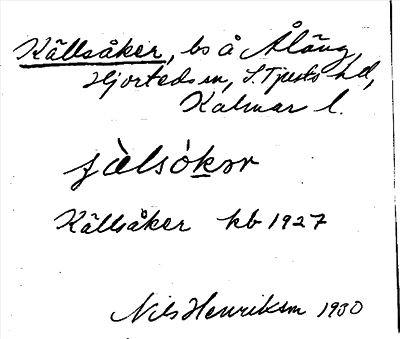 Källsåker, bs å Åläng,
Hjorteds sn, S. Tjusts hd,
Kalmar l.
Källsåker kb 1927
Nils Henriksson 1930